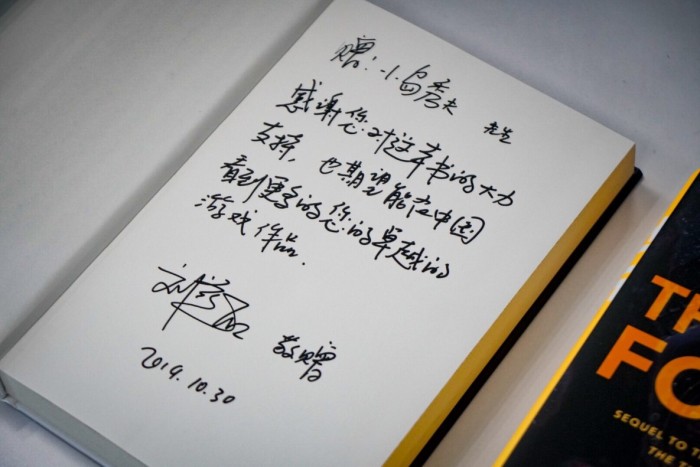 赠：小岛秀夫 先生
感谢您对这本书的大力
支持，也期望能在中国
看到更多的您的卓越的
游戏作品.
刘慈欣 敬赠
2019.10.30
TH
FO
SEQUEL TO
THE